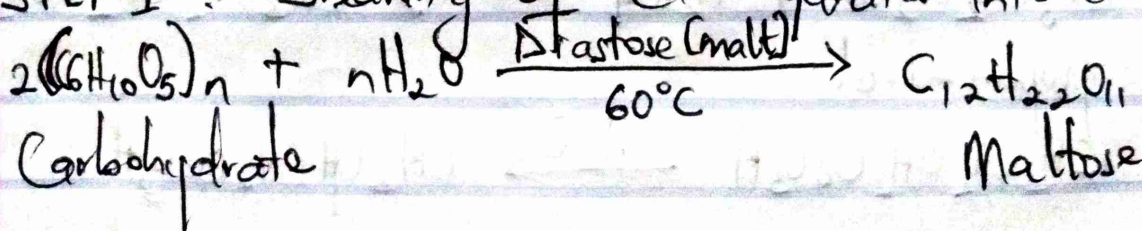 2(C6H10O5)n + nH2O Diastose (malt) → C12H22O11
60°C
Carbohydrate Maltose